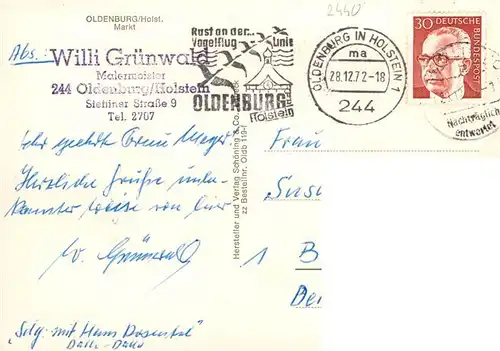 2440
OLDENBURG/Holst.
Markt
Abs.:
Willi Grünwald
Malermeister
244 Oldenburg/Holstein
Stettiner Straße 9
Tel. 2707
Rast an der..
Vogelflug Linie
OLDENBURG
Holstein
OLDENBURG IN HOLSTEIN 1
ma
28.12.72-18
244
30 DEUTSCHE
BUNDESPOST
Nachträglich
entwertet
Sehr geehrte Frau Meyer!
Herzliche Grüße unbe-
kannter Weise von hier
W. Grünwald
"Selg. mit Hans Rosental"
Dalli-Dalli
Hersteller und Verlag Schöning & Co.
zz Bestellnr. Oldb 1194
Frau
Susa
1 B
Be